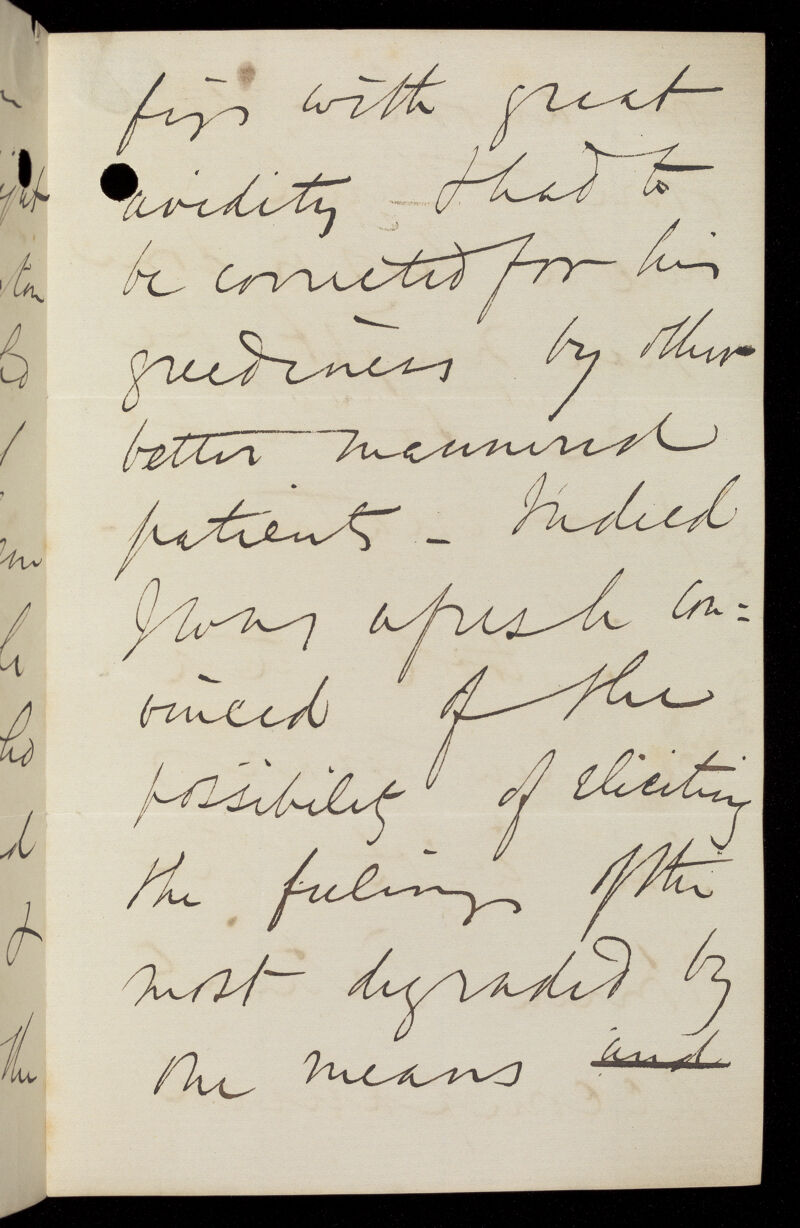 figs with great
avidity & had to
be corrected for his
greediness by other
better mannered
patients - Indeed
I was afresh con=
vinced of the
possibility of eliciting
the feelings of the
most degraded by
one means and